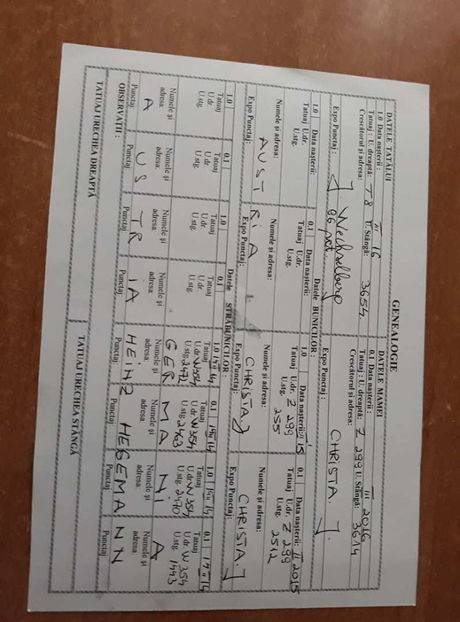 GENEALOGIE
DATELE TATALUI
1.0 Data nașterii: III 16
Tatuaj : U. dreaptă: T 8 U. Stângă: 3654
Crescătorul și adresa:
J Wechselberg
Expo Punctaj: 96 pct
DATELE MAMEI
0.1 Data nașterii: III 2016
Tatuaj : U. dreaptă: Z 299 U. Stângă: 3614
Crescătorul și adresa:
CHRISTA. J.
Expo Punctaj:
Datele BUNICILOR :
1.0 Data nașterii:
Tatuaj U.dr.
U.stg.
Numele și adresa:
Expo Punctaj:
0.1 Data nașterii:
Tatuaj U.dr.
U.stg.
Numele și adresa:
Expo Punctaj:
AUSTRIA
1.0 Data nașterii: 15
Tatuaj U.dr. Z 299
U.stg. 255
Numele și adresa:
CHRISTA J
Expo Punctaj:
0.1 Data nașterii: II 2015
Tatuaj U.dr. Z 299
U.stg. 2512
Numele și adresa:
CHRISTA. J
Expo Punctaj:
Datele STRĂBUNICILOR :
1.0
Tatuaj
U.dr
U.stg.
Numele și adresa:
Punctaj:
0.1
Tatuaj
U.dr
U.stg.
Numele și adresa:
Punctaj:
1.0
Tatuaj
U.dr
U.stg.
Numele și adresa:
Punctaj:
0.1
Tatuaj
U.dr
U.stg.
Numele și adresa:
Punctaj:
AUSTRIA
1.0 14
Tatuaj
U.dr W354
U.stg 2472
Numele și adresa:
Punctaj:
0.1 14
Tatuaj
U.dr W354
U.stg. 2463
Numele și adresa:
Punctaj:
1.0 14
Tatuaj
U.dr W354
U.stg. 2470
Numele și adresa:
Punctaj:
0.1 14
Tatuaj
U.dr W354
U.stg. 1443
Numele și adresa:
Punctaj:
GERMANIA
HEINZ HEGEMANN
OBSERVATII :
TATUAJ URECHEA DREAPTĂ
TATUAJ URECHEA STÂNGĂ